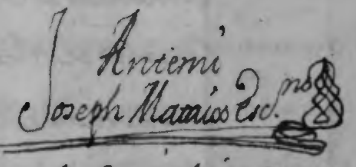 Antemi
Joseph Mataios Esc.no